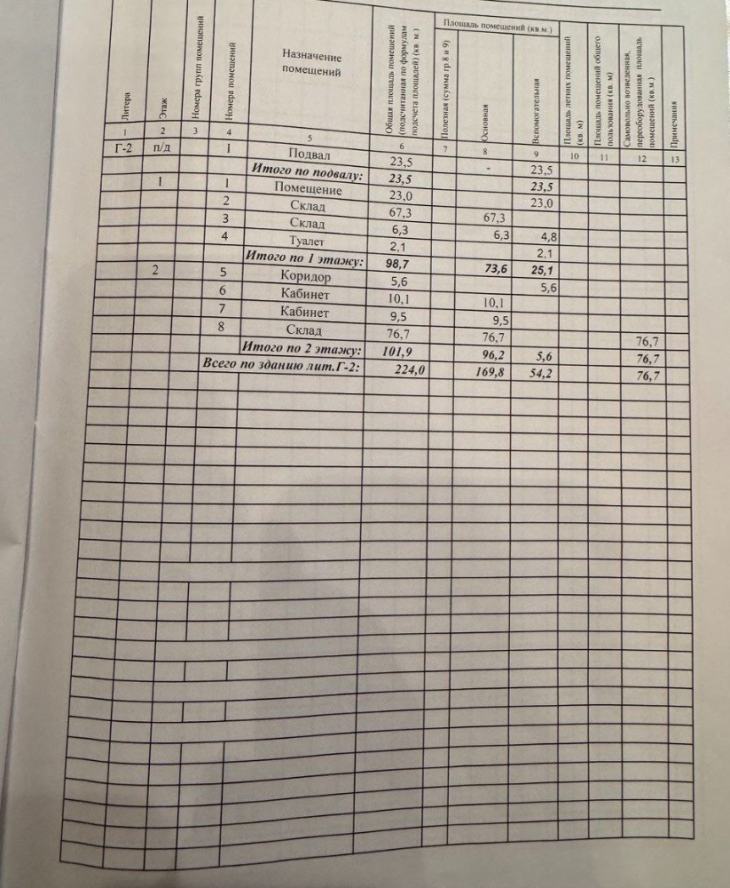 Литера
Этаж
Номера групп помещений
Номера помещений
Назначение помещений
Общая площадь помещений (подсчитанная по формулам подсчета площадей) (кв. м.)
Площадь помещений (кв.м.)
Полезная (сумма гр.8 и 9)
Основная
Вспомогательная
Площадь летних помещений (кв. м)
Площадь помещений общего пользования (кв. м)
Самовольно возведенная, переоборудованная площадь помещений (кв.м.)
Примечания
1 2 3 4 5 6 7 8 9 10 11 12 13
Г-2 п/д 1 Подвал 23,5 - 23,5
Итого по подвалу: 23,5 23,5
1 1 Помещение 23,0 23,0
2 Склад 67,3 67,3
3 Склад 6,3 6,3 4,8
4 Туалет 2,1 2,1
Итого по 1 этажу: 98,7 73,6 25,1
2 5 Коридор 5,6 5,6
6 Кабинет 10,1 10,1
7 Кабинет 9,5 9,5
8 Склад 76,7 76,7 76,7
Итого по 2 этажу: 101,9 96,2 5,6 76,7
Всего по зданию лит.Г-2: 224,0 169,8 54,2 76,7